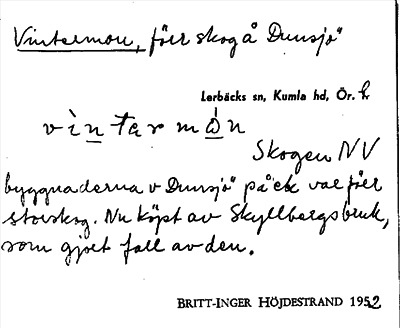 Vintermon, förr skog å Dunsjö
Lerbäcks sn, Kumla hd, Ör. l.
vìntərmón
Skogen NV
byggnaderna v Dunsjö på ek var förr
storskog. Nu köpt av Skyllbergs bruk,
som gjort fall av den.
BRITT-INGER HÖJDESTRAND 1952